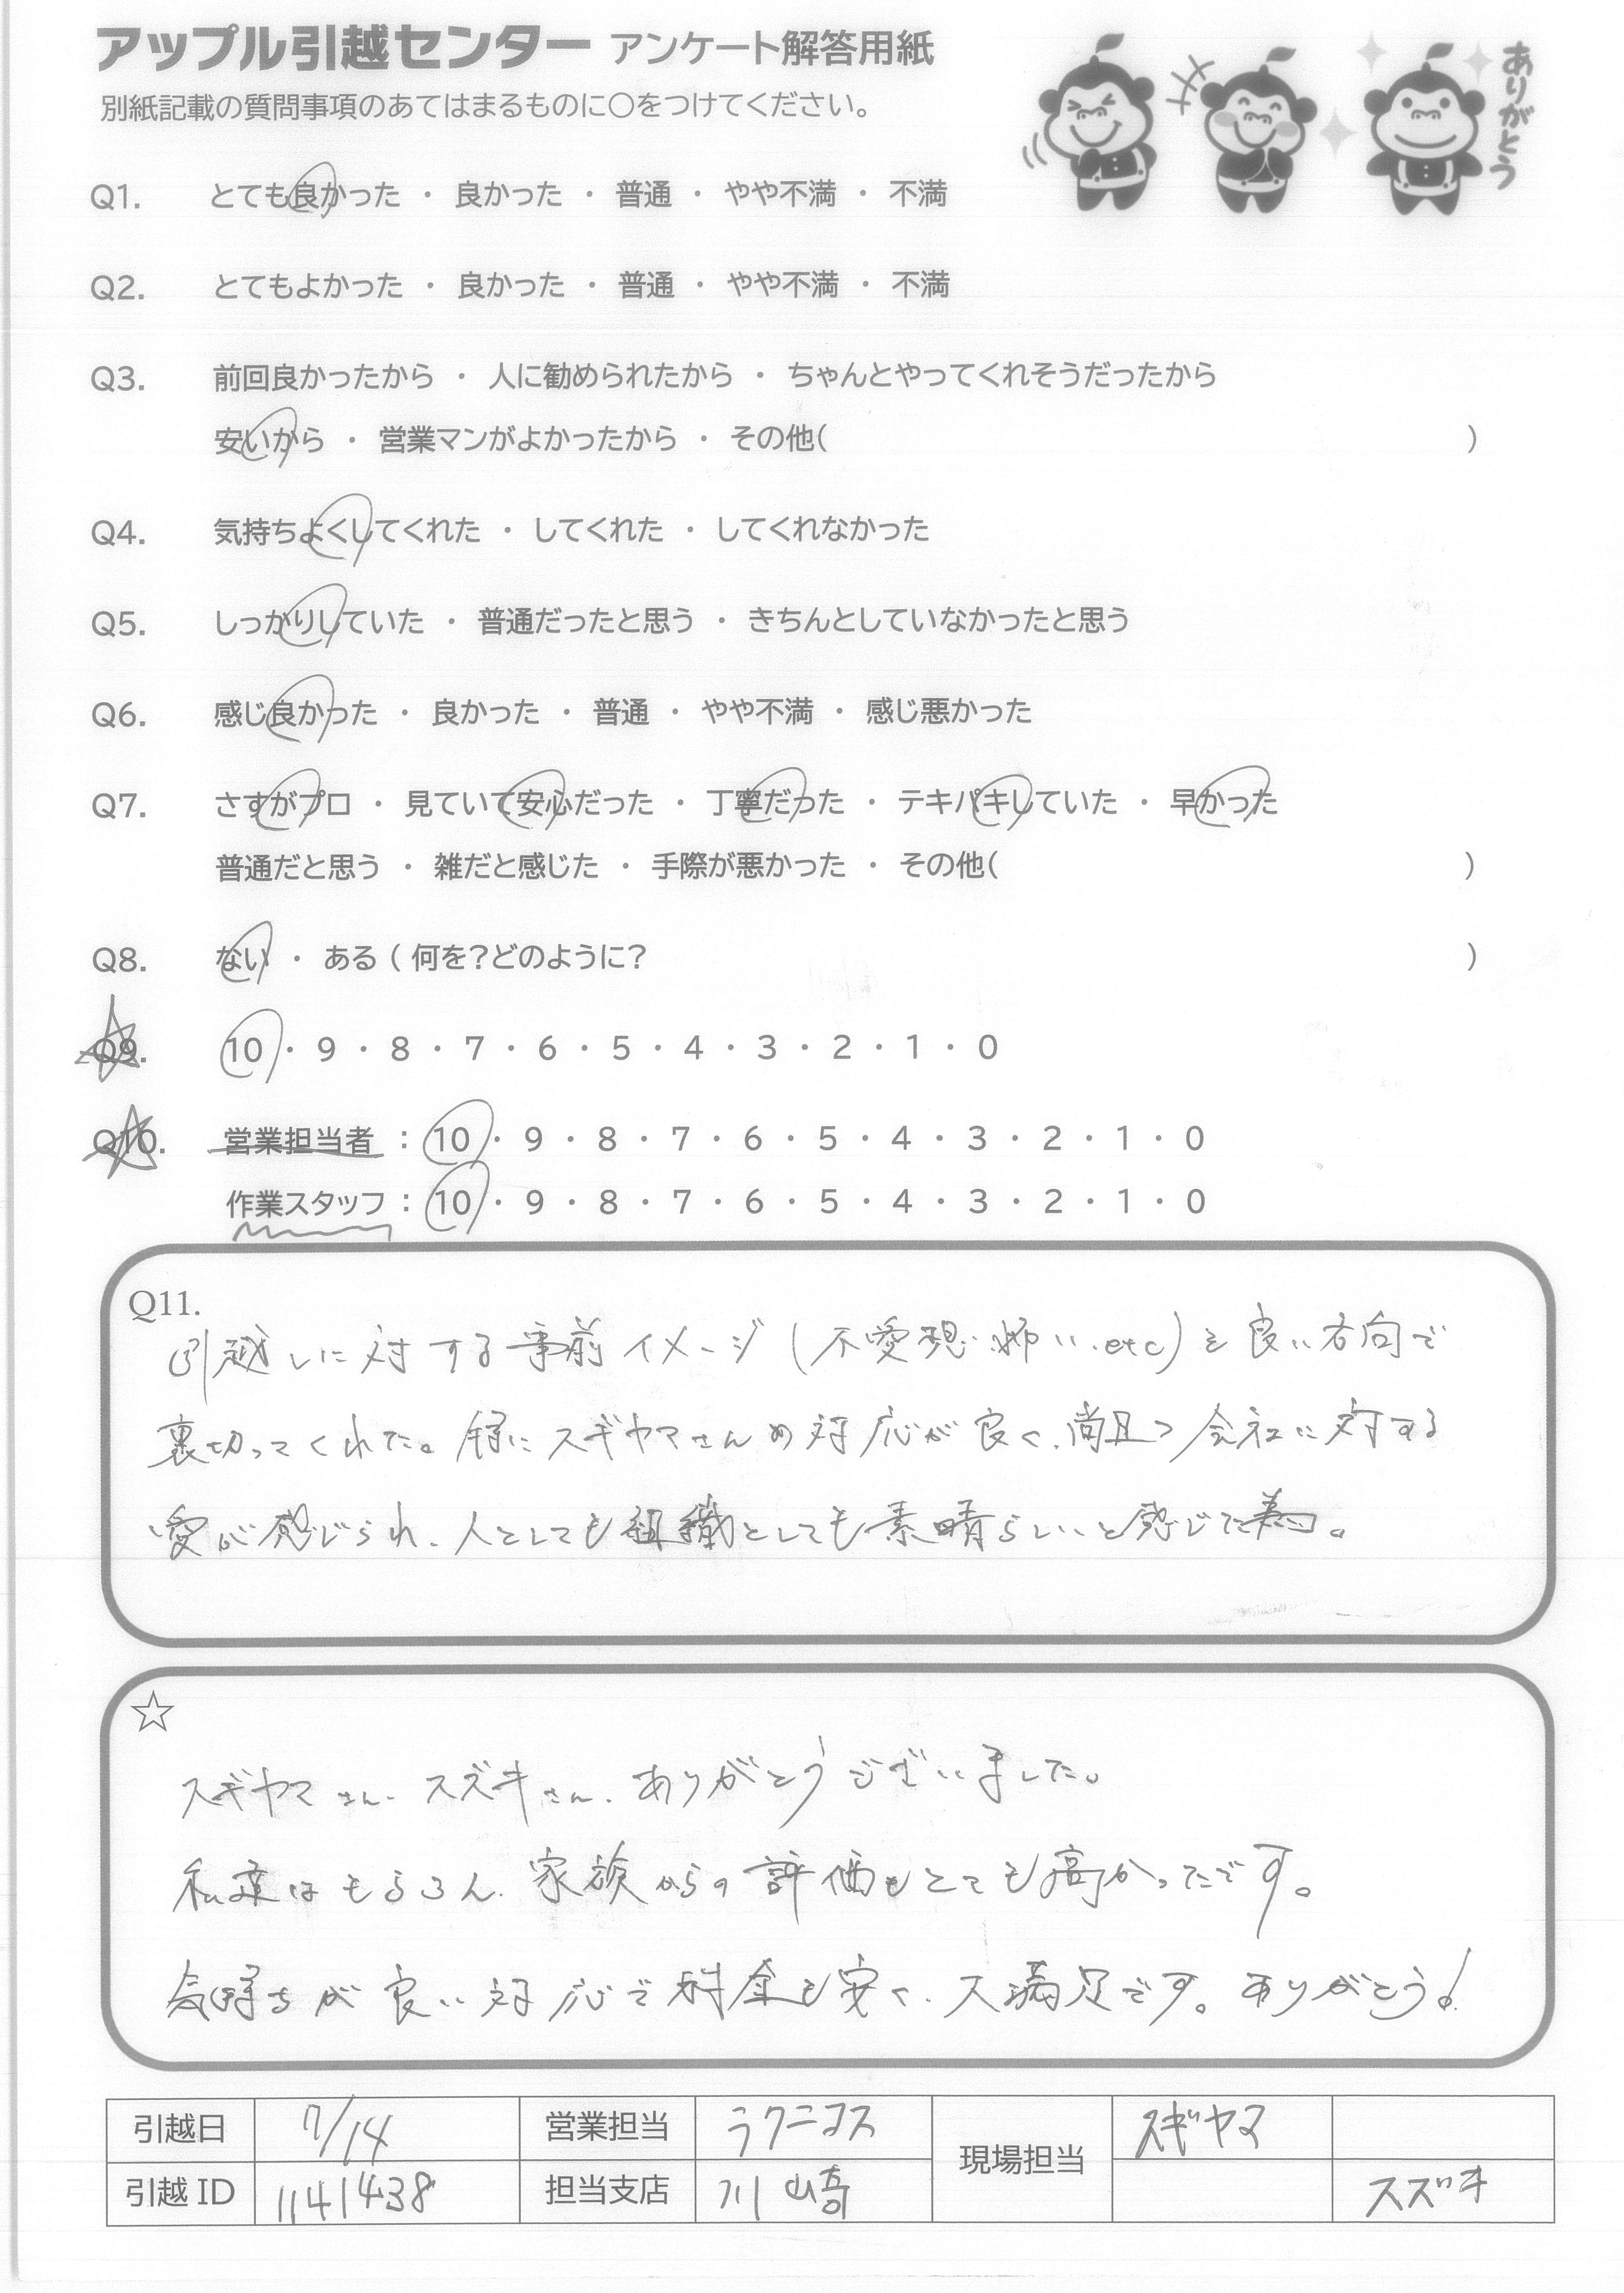 アップル引越センター アンケート解答用紙
別紙記載の質問事項のあてはまるものに○をつけてください。
ありがとう
Q1. とても良かった ・ 良かった ・ 普通 ・ やや不満 ・ 不満
Q2. とてもよかった ・ 良かった ・ 普通 ・ やや不満 ・ 不満
Q3. 前回良かったから ・ 人に勧められたから ・ ちゃんとやってくれそうだったから
安いから ・ 営業マンがよかったから ・ その他( )
Q4. 気持ちよくしてくれた ・ してくれた ・ してくれなかった
Q5. しっかりしていた ・ 普通だったと思う ・ きちんとしていなかったと思う
Q6. 感じ良かった ・ 良かった ・ 普通 ・ やや不満 ・ 感じ悪かった
Q7. さすがプロ ・ 見ていて安心だった ・ 丁寧だった ・ テキパキしていた ・ 早かった
普通だと思う ・ 雑だと感じた ・ 手際が悪かった ・ その他( )
Q8. ない ・ ある ( 何を?どのように? )
Q9. 10 ・ 9 ・ 8 ・ 7 ・ 6 ・ 5 ・ 4 ・ 3 ・ 2 ・ 1 ・ 0
Q10. 営業担当者 : 10 ・ 9 ・ 8 ・ 7 ・ 6 ・ 5 ・ 4 ・ 3 ・ 2 ・ 1 ・ 0
作業スタッフ : 10 ・ 9 ・ 8 ・ 7 ・ 6 ・ 5 ・ 4 ・ 3 ・ 2 ・ 1 ・ 0
Q11.
引越しに対する事前イメージ(不愛想・怖い・etc)を良い方向で
裏切ってくれた。特にスギヤマさんの対応が良く、尚且つ会社に対する
愛が感じられ、人としても組織としても素晴らしいと感じた為。
☆
スギヤマさん、スズキさん、ありがとうございました。
私達はもちろん、家族からの評価もとても高かったです。
気持ちが良い対応で料金も安く、大満足です。ありがとう!
引越日 7/14 営業担当 ラクニコス 現場担当 スギヤマ
引越ID 1141438 担当支店 川崎 スズキ